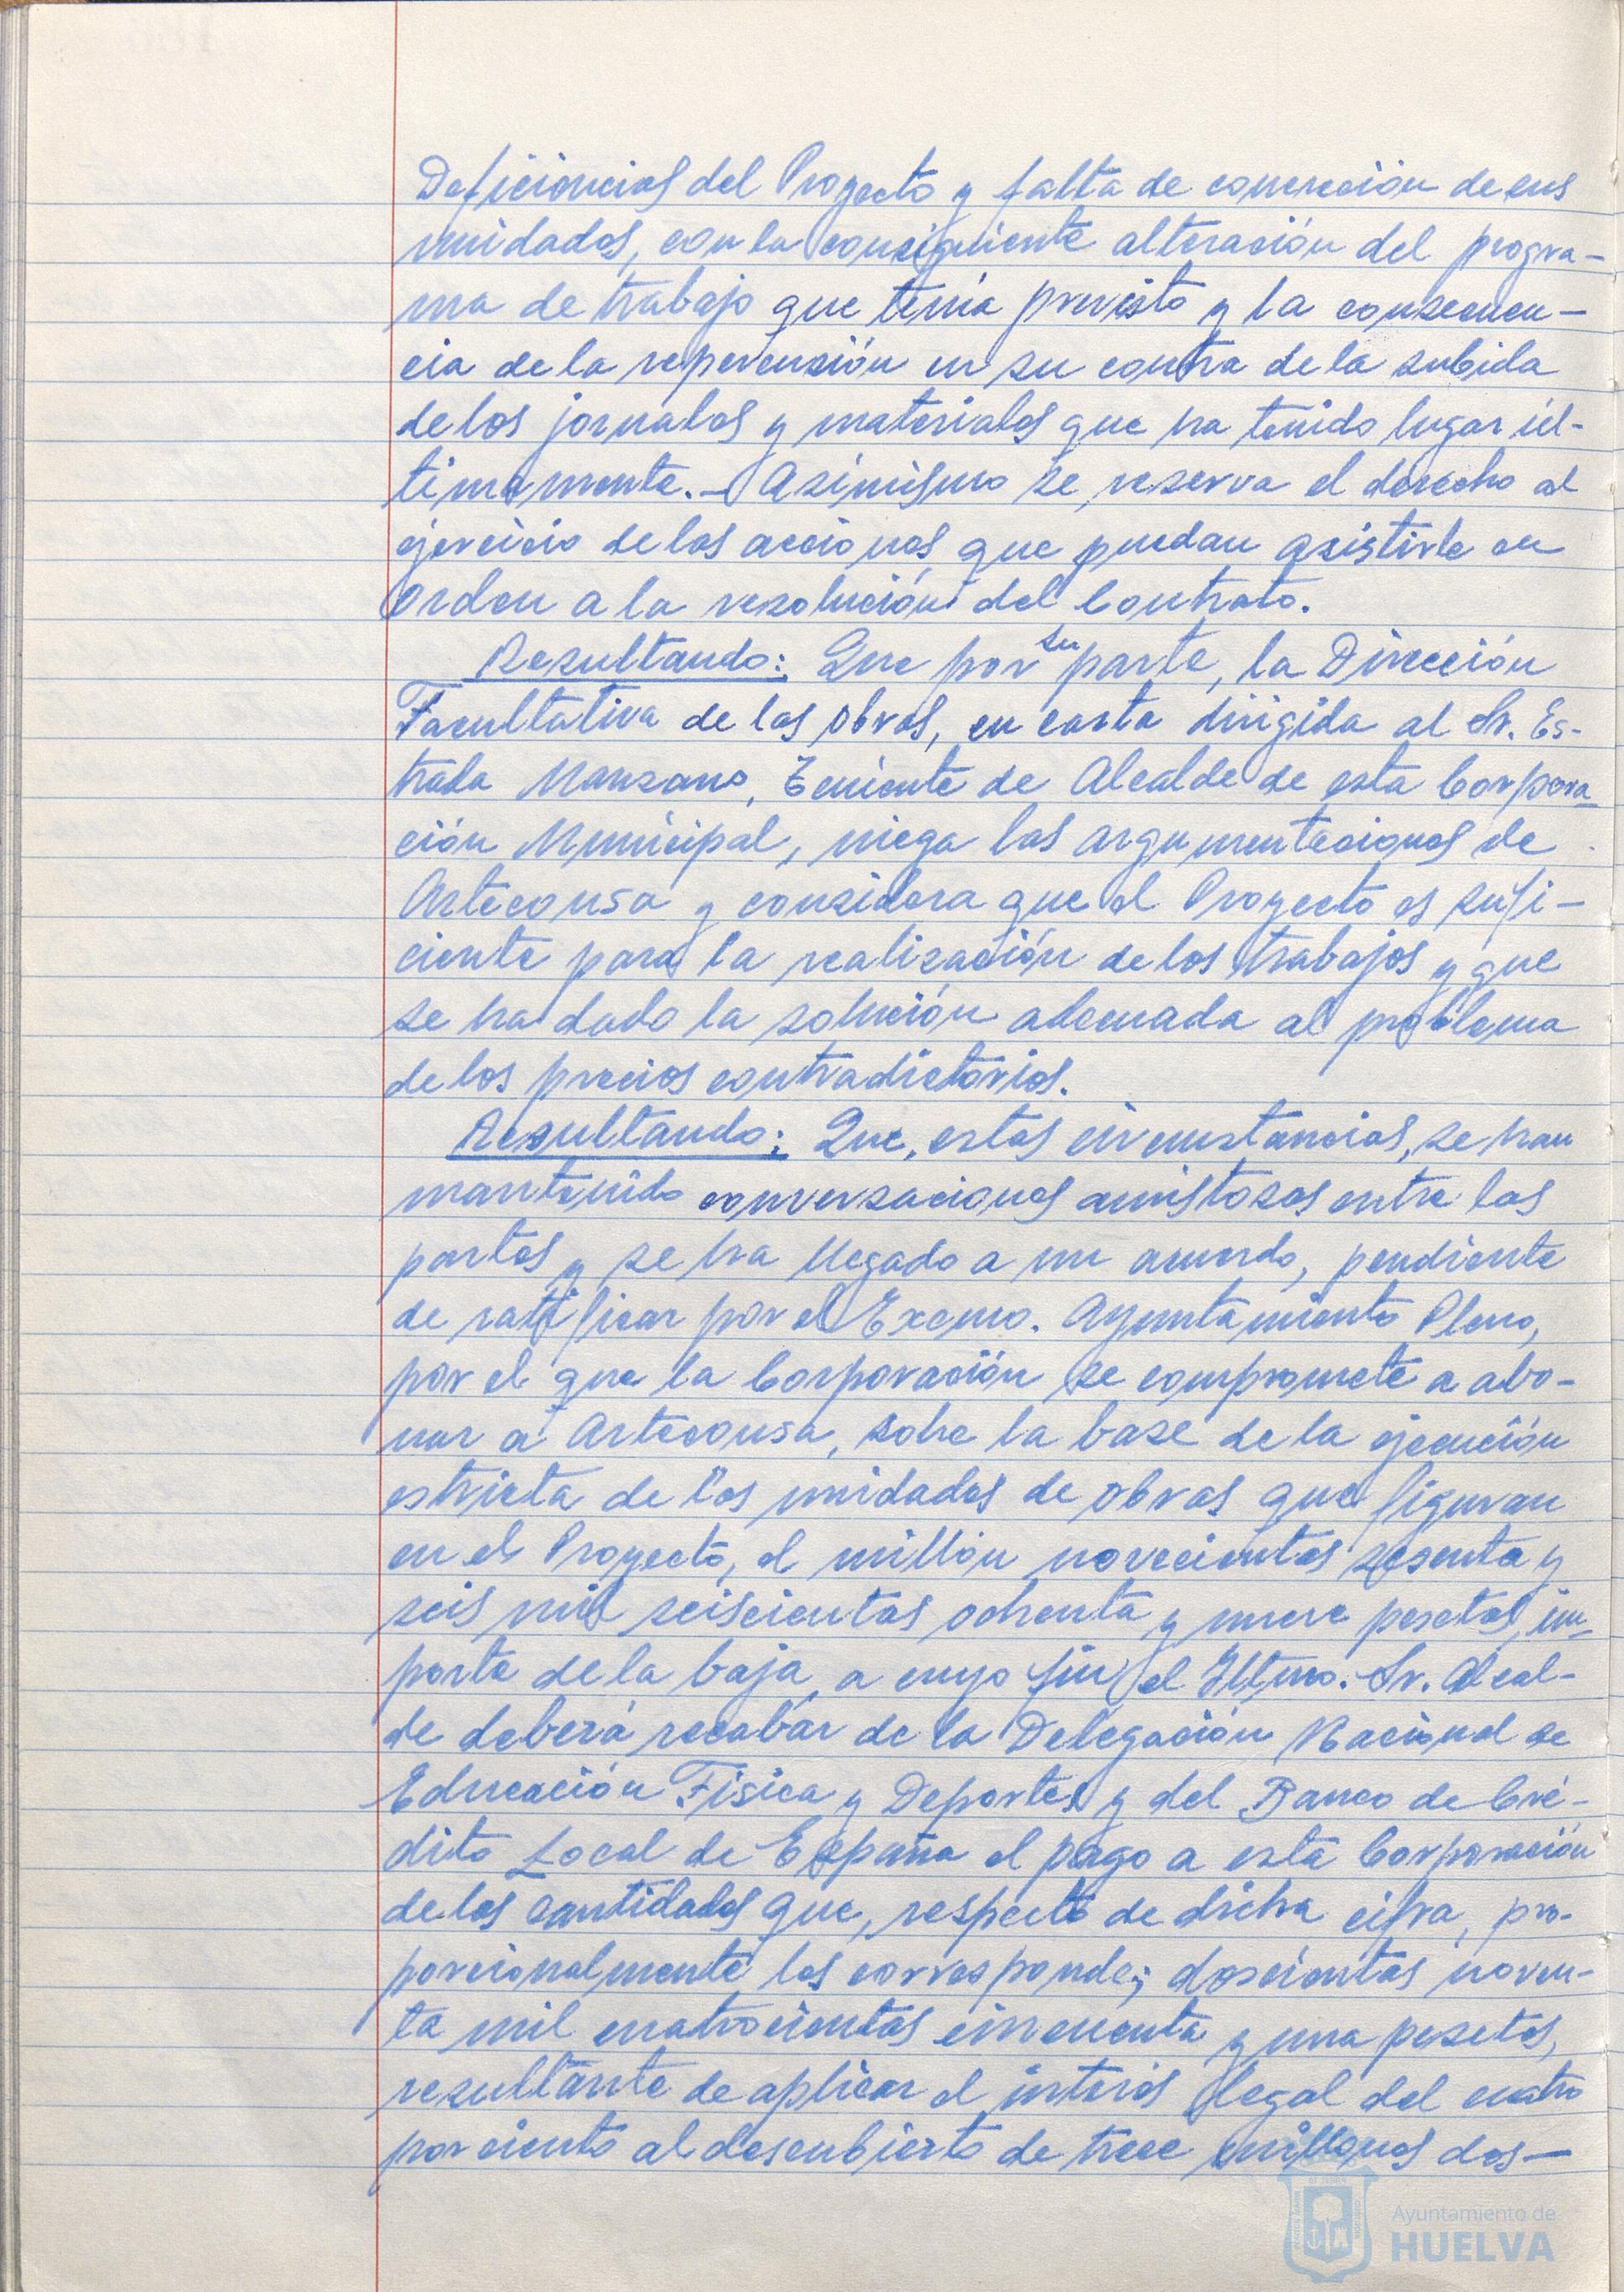 Deficiencias del Proyecto y falta de concreción de sus
unidades, con la consiguiente alteración del progra-
ma de trabajo que tenía previsto y la consecuen-
cia de la repercusión en su contra de la subida
de los jornales y materiales que ha tenido lugar úl-
timamente.- Asimismo se reserva el derecho al
ejercicio de las acciones que puedan asistirle en
orden a la resolución del Contrato.
Resultando: Que por su parte, la Dirección
Facultativa de las obras, en carta dirigida al Sr. Es-
trada Manzano, Teniente de Alcalde de esta Corpora-
ción Municipal, niega las argumentaciones de
Arteconsa y considera que el Proyecto es sufi-
ciente para la realización de los trabajos y que
se ha dado la solución adecuada al problema
de los precios contradictorios.
Resultando: Que, estas circunstancias, se han
mantenido conversaciones amistosas entre las
partes y se ha llegado a un acuerdo, pendiente
de ratificar por el Excmo. Ayuntamiento Pleno,
por el que la Corporación se compromete a abo-
nar a Arteconsa, sobre la base de la ejecución
estricta de las unidades de obras que figuran
en el Proyecto, el millón novecientas sesenta y
seis mil seiscientas ochenta y nueve pesetas, im-
porte de la baja, a cuyo fin el Iltmo. Sr. Alcal-
de deberá recabar de la Delegación Nacional de
Educación Física y Deportes y del Banco de Cré-
dito Local de España el pago a esta Corporación
de las cantidades que, respecto de dicha cifra, pro-
porcionalmente les corresponde; doscientas noven-
ta mil cuatrocientas cincuenta y una pesetas,
resultante de aplicar el interés legal del cuatro
por ciento al descubierto de trece millones dos-
Ayuntamiento de
HUELVA